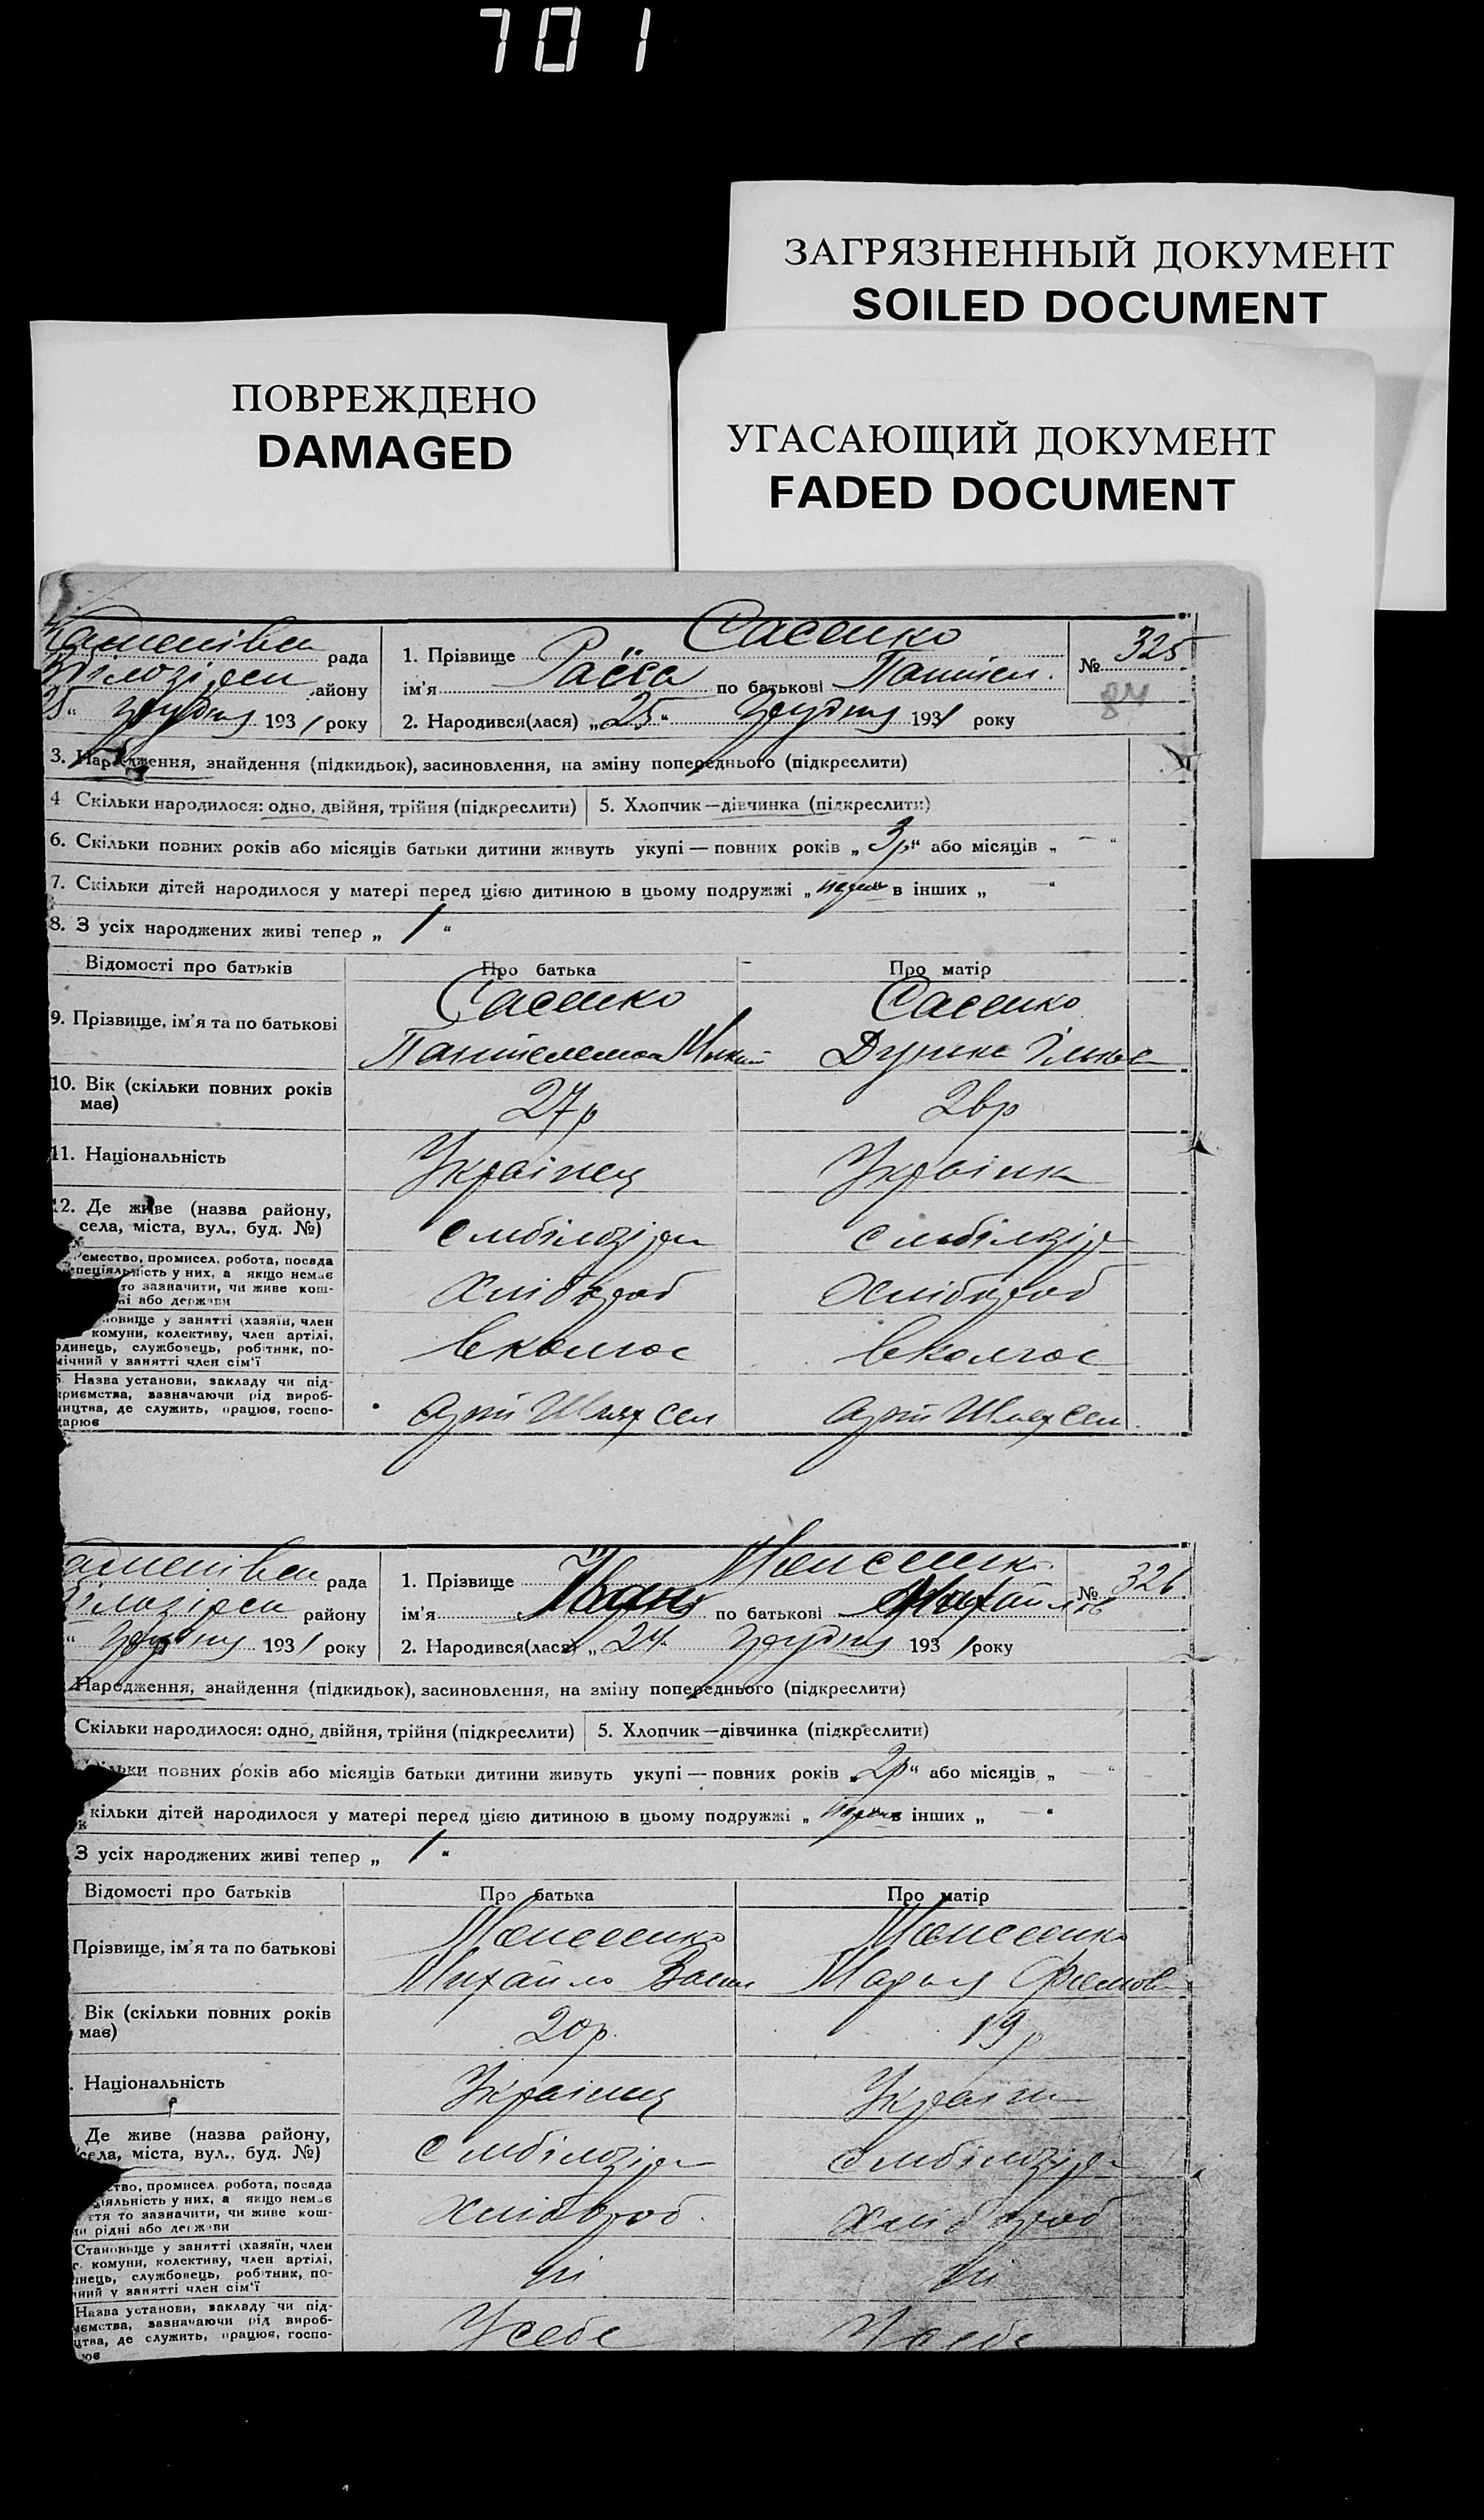 701
ЗАГРЯЗНЕННЫЙ ДОКУМЕНТ
SOILED DOCUMENT
ПОВРЕЖДЕНО
DAMAGED
УГАСАЮЩИЙ ДОКУМЕНТ
FADED DOCUMENT
рада
району
грудня 1931 року
1. Прізвище Сасенко
ім'я Раёса по батькові Пантел.
2. Народився(лася) „25“ грудня 1931 року
№ 325
84
3. Народження, знайдення (підкидьок), засиновлення, на зміну попереднього (підкреслити)
4 Скільки народилося: одно, двійня, трійня (підкреслити) 5. Хлопчик—дівчинка (підкреслити)
6. Скільки повних років або місяців батьки дитини живуть укупі — повних років „3р“ або місяців „—“
7. Скільки дітей народилося у матері перед цією дитиною в цьому подружжі „ в інших „—“
8. З усіх народжених живі тепер „1“
Відомості про батьків Про батька Про матір
9. Прізвище, ім'я та по батькові Сасенко Сасенко
10. Вік (скільки повних років має) 27р 26р
11. Національність Українец Українк
12. Де живе (назва району, села, міста, вул., буд. №) с мбілозір с мбілозір
ремество, промисел, робота, посада
спеціяльність у них, а якщо немає
то зазначити, чи живе кош-
ні або держави
Хлібороб Хлібороб
новище у занятті (хазяїн, член
комуни, колективу, член артілі,
одинець, службовець, робітник, по-
мічний у занятті член сім'ї
вколгос вколгос
Назва установи, закладу чи під-
приємства, зазначаючи рід вироб-
ництва, де служить, працює, госпо-
дарює
арт Шлях сел арт Шлях сел
рада
району
грудня 1931 року
1. Прізвище Моисеенко
ім'я Іван по батькові Михайлов
2. Народився(лася) „24“ грудня 1931 року
№ 326
Народження, знайдення (підкидьок), засиновлення, на зміну попереднього (підкреслити)
Скільки народилося: одно, двійня, трійня (підкреслити) 5. Хлопчик—дівчинка (підкреслити)
ільки повних років або місяців батьки дитини живуть укупі — повних років „2р“ або місяців „—“
кільки дітей народилося у матері перед цією дитиною в цьому подружжі „ в інших „—“
З усіх народжених живі тепер „1“
Відомості про батьків Про батька Про матір
Прізвище, ім'я та по батькові Моисеенко Моисеенко
Михайло Васил Марья
Вік (скільки повних років має) 20р. 19р
Національність Українец Україн
Де живе (назва району, села, міста, вул., буд. №) с мбілозір с мбілозір
ство, промисел, робота, посада
іяльність у них, а якщо немає
стя то зазначити, чи живе кош-
ти рідні або держави
Хлібороб. Хлібороб
Становище у занятті (хазяїн, член
г. комуни, колективу, член артілі,
инець, службовець, робітник, по-
чний у занятті член сім'ї
Назва установи, закладу чи під-
иємства, зазначаючи рід вироб-
цтва, де служить, працює, госпо-
ює
У себе У себе